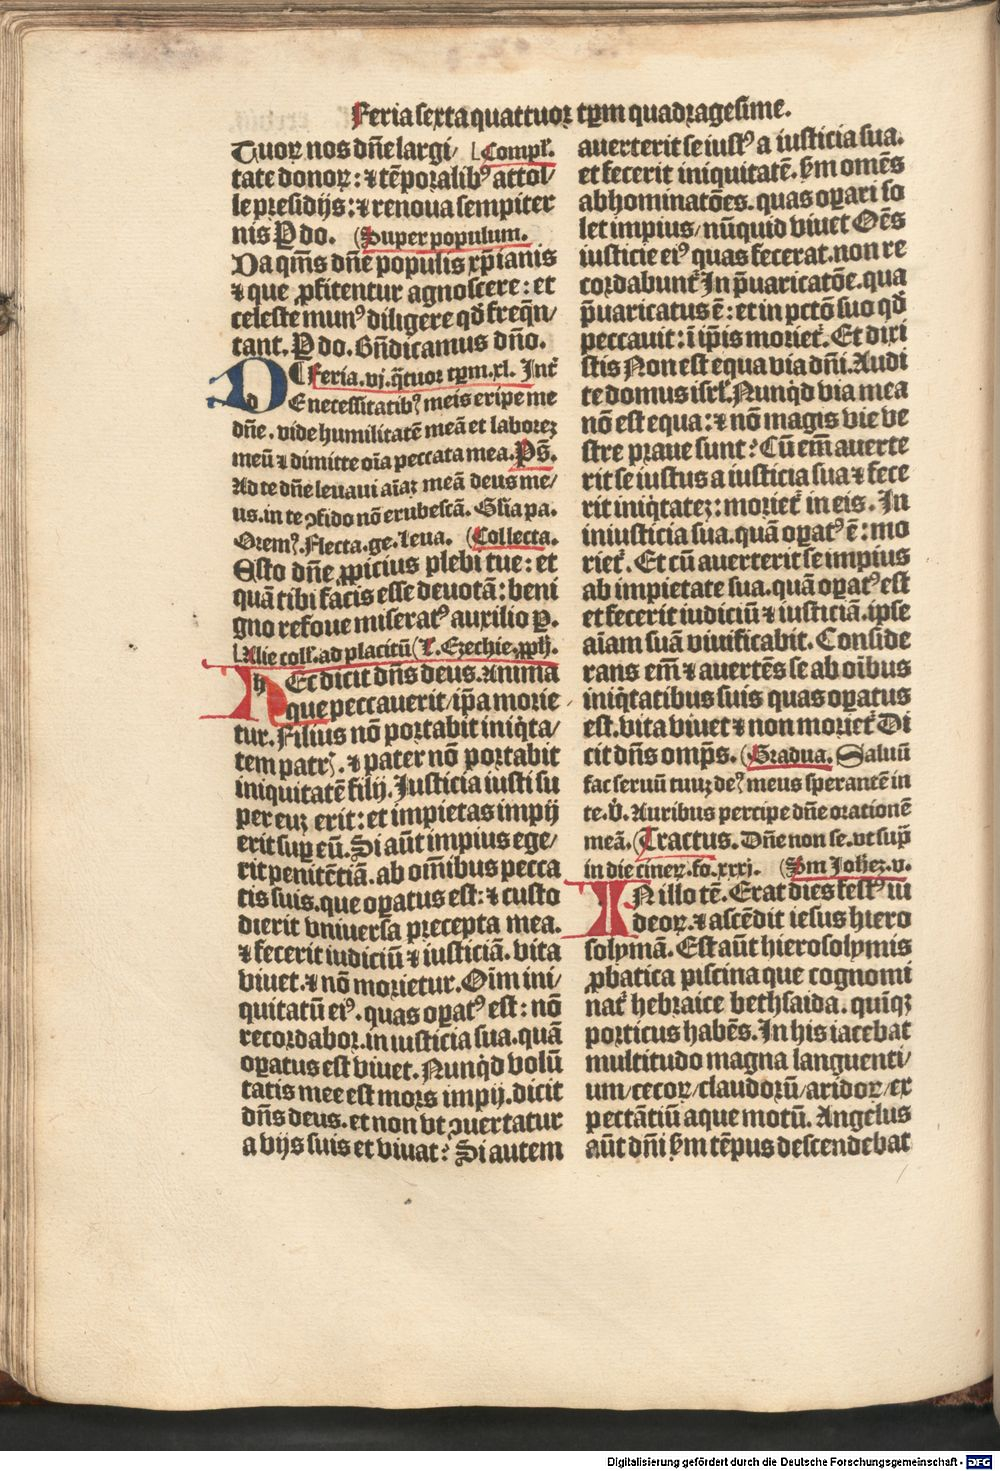 Feria sexta quattuor tꝑm quadragesime.
Tuoꝝ nos dñe largi/ Compľ.
tate donoꝝ: ⁊ tẽporalibꝰ attol/
le presidijs: ⁊ renoua sempiter
nis Ꝑ do. (Super populum.
Da qm̃s dñe populis xp̃ianis
⁊ que ꝓfitentur agnoscere: et
celeste munꝰ diligere qđ freqñ/
tant. Ꝑ do. Bñdicamus dño.
Feria. vj. q̃tuor tꝑm. xl. Int̃
DE necessitatibꝰ meis eripe me
dñe. vide humilitatẽ meã et laborez
meũ ⁊ dimitte oĩa peccata mea. Pš.
Ad te dñe leuaui aĩaz meã deus me/
us. in te ꝯfido nõ erubescã. Gľia pa.
Oremꝰ. Flecta. ge. Leua. (Collecta.
ASto dñe ꝓpicius plebi tue: et
quã tibi facis esse deuotã: beni
gno refoue miseratꝰ auxilio ꝑ.
Alie colľ. ad placitũ (L. Ezechie. ꝓph.
HEc dicit dñs deus. Anima
que peccauerit / ip̃a morie
tur. Filius nõ portabit iniq̇ta/
tem patrꝭ. ⁊ pater nõ portabit
iniquitatẽ filij. Justicia iusti su
per euz erit: et impietas impij
erit suꝑ eũ. Si aũt impius ege/
rit penitẽtiã. ab om̃ibus pecca
tis suis. que oꝑatus est: ⁊ custo
dierit vniuersa precepta mea.
⁊ fecerit iudiciũ ⁊ iusticiã. vita
viuet. ⁊ nõ morietur. Oĩm ini/
quitatũ eiꝰ. quas oꝑatꝰ est: nõ
recordabor. in iusticia sua. quã
oꝑatus est viuet. Nunq̇d volũ
tatis mee est mors impij. dicit
dñs deus. et non vt ꝯuertatur
a vijs suis et viuat? Si autem
auerterit se iustꝰ a iusticia sua.
et fecerit iniquitatẽ. ẜm omẽs
abhominatões. quas oꝑari so
let impius / nũquid viuet Oẽs
iusticie eiꝰ quas fecerat. non re
cordabunt̃ In p̃uaricatõe. qua
p̃uaricatus ẽ: et in pctõ suo qđ
peccauit: ĩ ip̃is moriet̃. Et dixi
stis Non est equa via dñi. Audi
te domus isrľ. Nunq̇d via mea
nõ est equa: ⁊ nõ magis vie ve
stre praue sunt? Cũ em̃ auerte
rit se iustus a iusticia sua ⁊ fece
rit iniq̇tatez: moriet̃ in eis. In
iniusticia sua. quã oꝑatꝰ ẽ: mo
riet̃. Et cũ auerterit se impius
ab impietate sua. quã oꝑatꝰ est
et fecerit iudiciũ ⁊ iusticiã. ipse
aĩam suã viuificabit. Conside
rans em̃ ⁊ auertẽs se ab oĩbus
iniq̇tatibus suis quas oꝑatus
est. vita viuet ⁊ non moriet̃ Di
cit dñs omp̃s. (Gradua. Saluũ
fac seruũ tuuz deꝰ meus sperantẽ in
te. v̉. Auribus percipe dñe orationẽ
meã. (Tractus. Dñe non se. vt sup̃
in die cineꝝ. fo. xxxj. (ẜm Joħez. v.
IN illo tẽ. Erat dies festꝰ iu
deoꝝ. ⁊ ascẽdit iesus hiero
solymã. Est aũt hierosolymis
ꝓbatica piscina que cognomi
nat̃ hebraice bethsaida. quĩqꝫ
porticus habẽs. In his iacebat
multitudo magna languenti/
um / cecoꝝ / claudorũ / aridoꝝ / ex
pectãtiũ aque motũ. Angelus
aũt dñi ẜm tẽpus descendebat
Digitalisierung gefördert durch die Deutsche Forschungsgemeinschaft - DFG